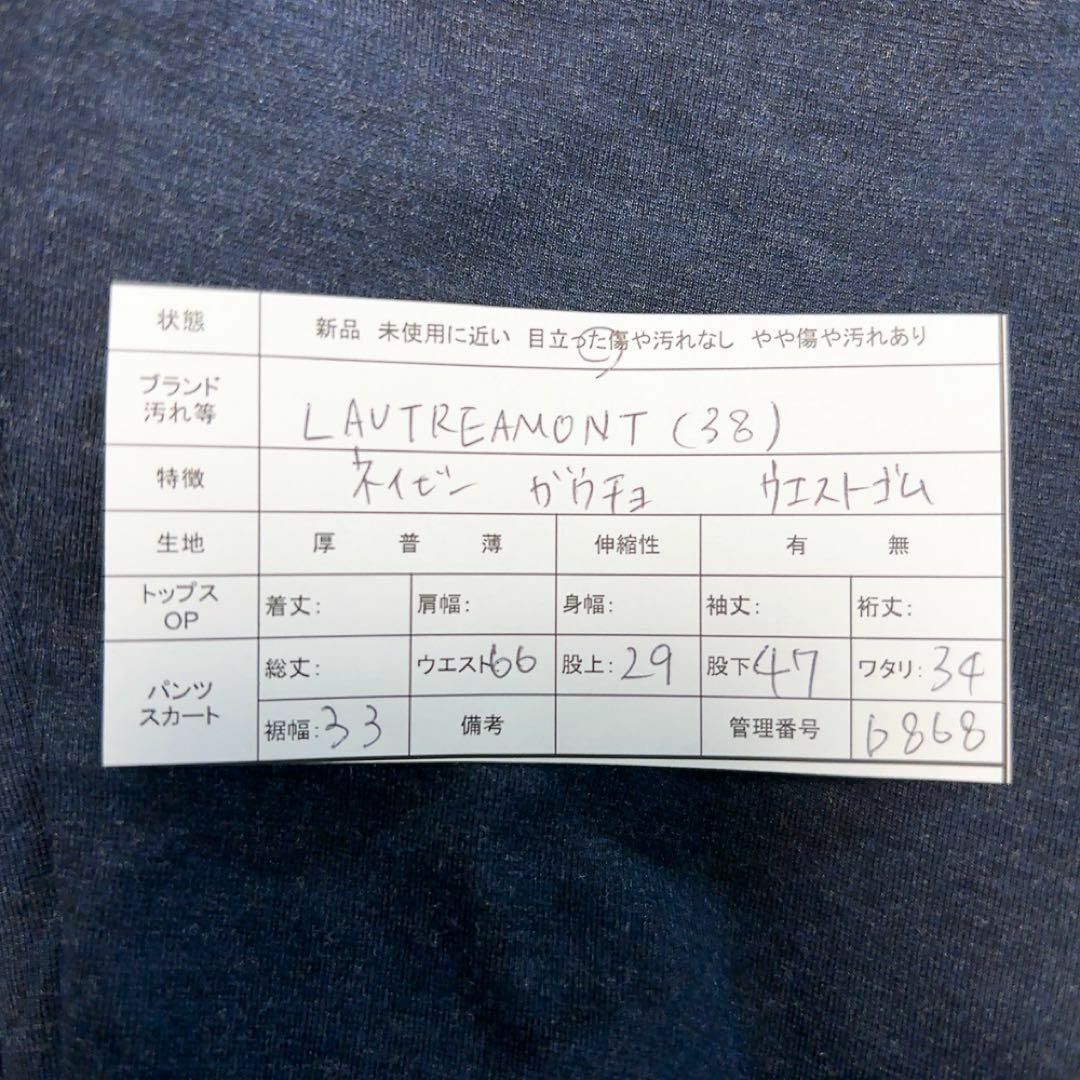 状態 新品 未使用に近い 目立った傷や汚れなし やや傷や汚れあり
ブランド
汚れ等 LAUTREAMONT (38)
特徴 ネイビー ガウチョ ウエストゴム
生地 厚 普 薄 伸縮性 有 無
トップス
OP 着丈: 肩幅: 身幅: 袖丈: 裄丈:
パンツ
スカート 総丈: ウエスト:66 股上:29 股下47 ワタリ:34
裾幅:33 備考 管理番号 6868